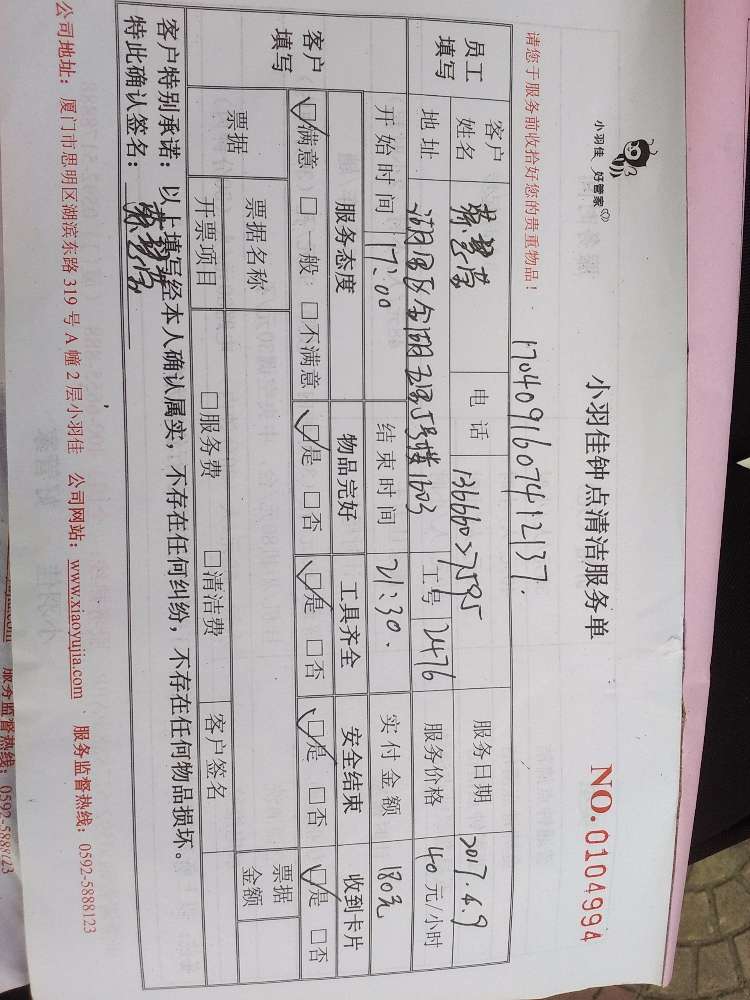 小羽佳 好管家
小羽佳钟点清洁服务单
NO.0104994
请您于服务前收拾好您的贵重物品！
1704091607412137.
员工填写 客户姓名 电话 服务日期 2017.4.9
地址 工号 2476 服务价格 40 元/小时
开始时间 17:00 结束时间 21:30. 实付金额 180元
客户填写 服务态度 物品完好 工具齐全 安全结束 收到卡片
☑满意 □一般 □不满意 ☑是 □否 ☑是 □否 ☑是 □否 ☑是 □否
票据 票据名称 票据金额
开票项目 □服务费 □清洁费 客户签名
客户特别承诺：以上填写经本人确认属实，不存在任何纠纷，不存在任何物品损坏。
特此确认签名：
公司地址：厦门市思明区湖滨东路 319 号 A 幢 2 层小羽佳 公司网站：www.xiaoyujia.com 服务监督热线：0592-5888123